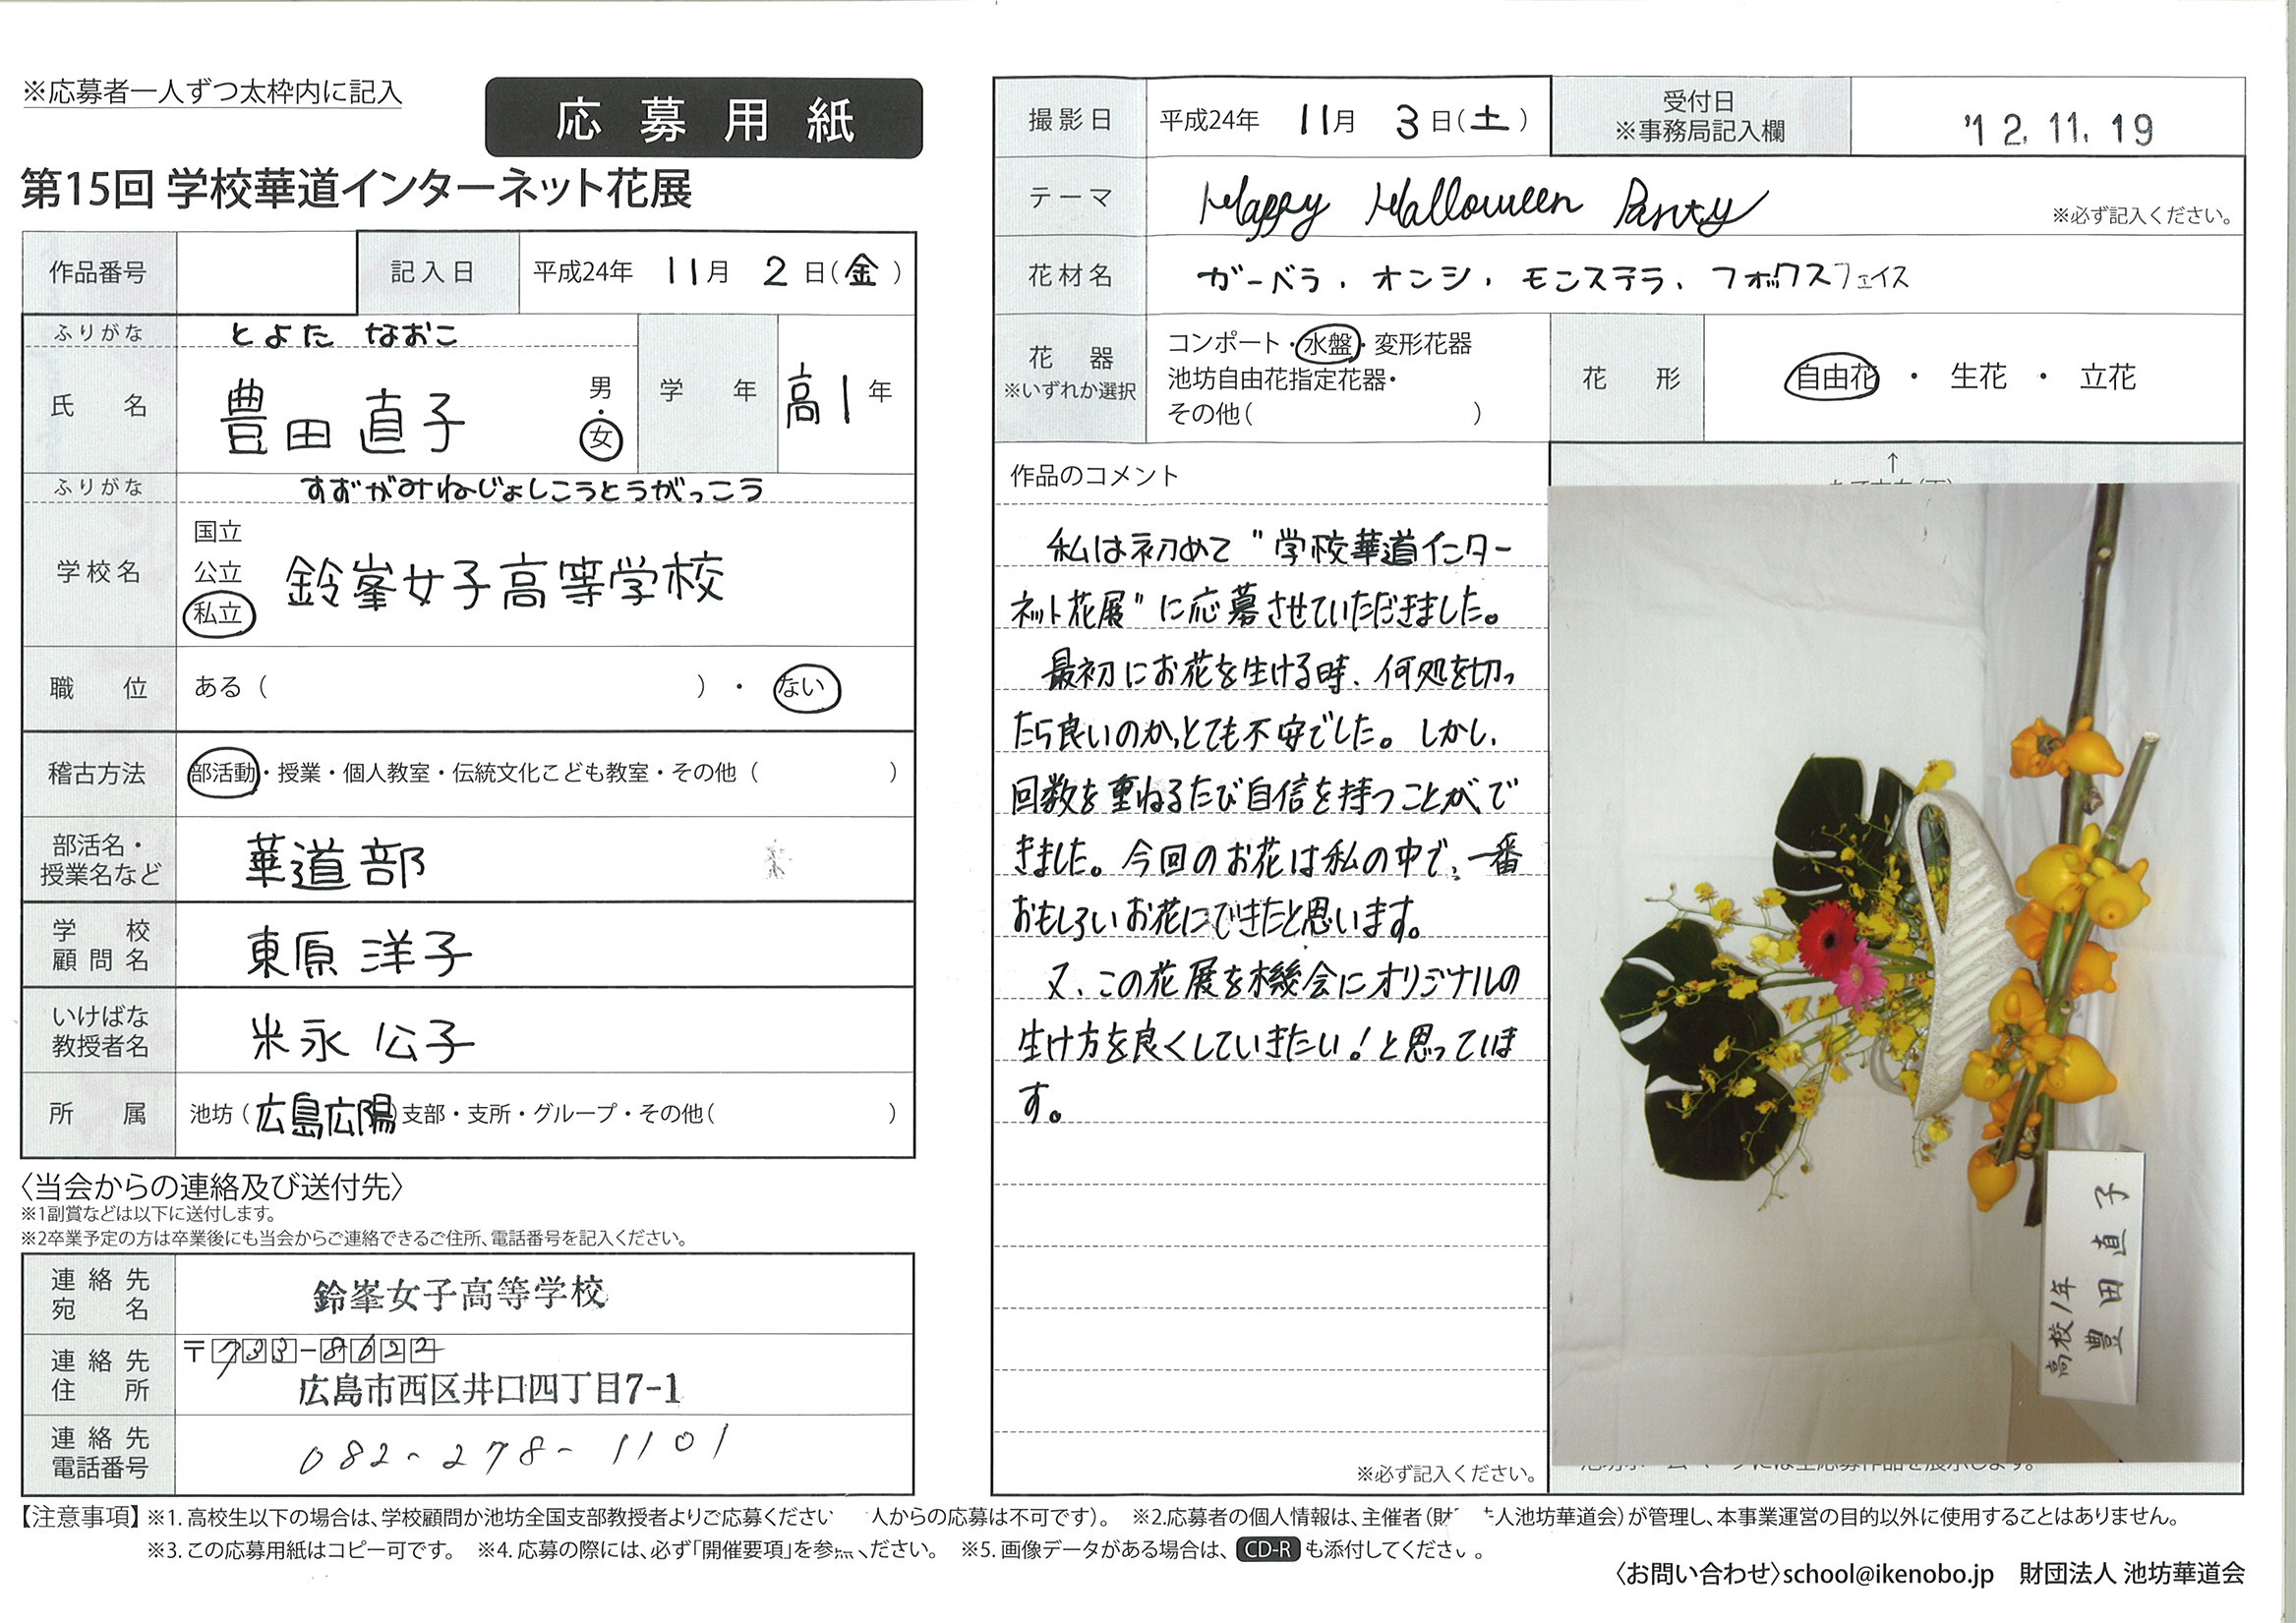 ※応募者一人ずつ太枠内に記入
応募用紙
第15回 学校華道インターネット花展
作品番号
記入日 平成24年 11月 2日(金)
ふりがな とよた なおこ
氏名 豊田 直子 男・女
学年 高1年
ふりがな すずがみねじょしこうとうがっこう
学校名 国立 公立 私立 鈴峯女子高等学校
職位 ある( )・ない
稽古方法 部活動・授業・個人教室・伝統文化こども教室・その他( )
部活名・授業名など 華道部
学校顧問名 東原 洋子
いけばな教授者名 米永 公子
所属 池坊(広島広陽)支部・支所・グループ・その他( )
〈当会からの連絡及び送付先〉
※1副賞などは以下に送付します。
※2卒業予定の方は卒業後にも当会からご連絡できるご住所、電話番号を記入ください。
連絡先宛名 鈴峯女子高等学校
連絡先住所 〒733-8622
広島市西区井口四丁目7-1
連絡先電話番号 082-278-1101
撮影日 平成24年 11月 3日(土)
受付日
※事務局記入欄
'12.11.19
テーマ Happy Halloween Party ※必ず記入ください。
花材名 ガーベラ、オンシ、モンステラ、フォックスフェイス
花器
※いずれか選択
コンポート・水盤・変形花器
池坊自由花指定花器・
その他( )
花形 自由花・生花・立花
作品のコメント
私は初めて"学校華道インター
ネット花展"に応募させていただきました。
最初にお花を生ける時、何処を切っ
たら良いのか、とても不安でした。しかし、
回数を重ねるたび自信を持つことがで
きました。今回のお花は私の中で、一番
おもしろいお花にできたと思います。
又、この花展を機会にオリジナルの
生け方を良くしていきたい!と思っていま
す。
※必ず記入ください。
↑
高校1年
豊田直子
【注意事項】※1.高校生以下の場合は、学校顧問か池坊全国支部教授者よりご応募ください 人からの応募は不可です)。 ※2.応募者の個人情報は、主催者(財 人池坊華道会)が管理し、本事業運営の目的以外に使用することはありません。
※3.この応募用紙はコピー可です。 ※4.応募の際には、必ず「開催要項」を参 ください。 ※5.画像データがある場合は、CD-Rも添付してください。
〈お問い合わせ〉school@ikenobo.jp 財団法人 池坊華道会